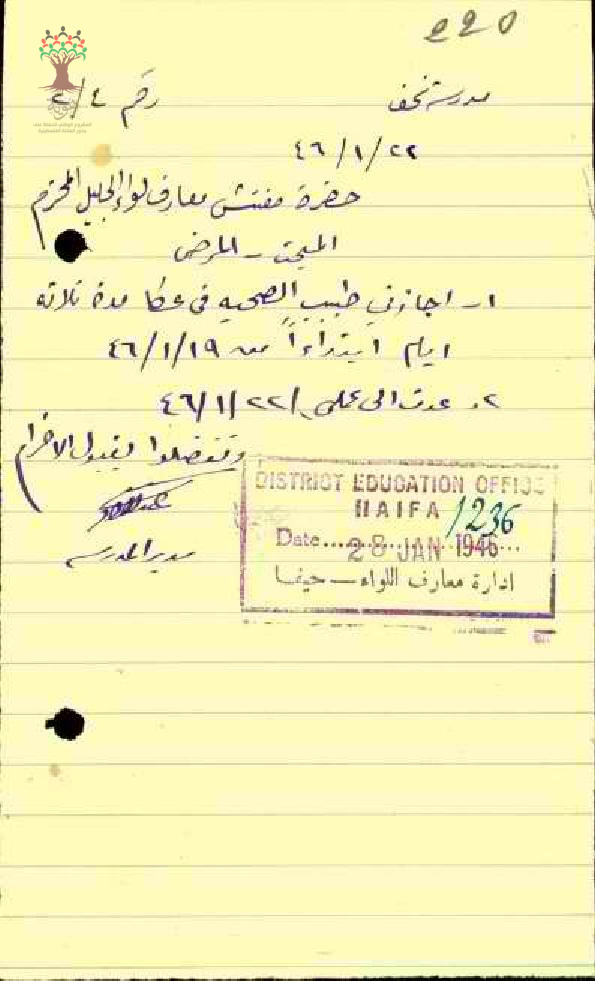 220
مدرسة نحف
رقم ٢/٤
٤٦/١/٢٢
حضرة مفتش معارف لواء الجليل المحترم
المبحث - المرض
١- اجازني طبيب الصحيه في عكا مدة ثلاثه
ايام ابتداءاً من ٤٦/١/١٩
٢- عدت الى عملي ٤٦/١/٢٢
وتفضلوا بقبول الاحترام
مدير المدرسه
DISTRICT EDUCATION OFFICE
HAIFA
1236
Date 28 JAN 1946
ادارة معارف اللواء – حيفا